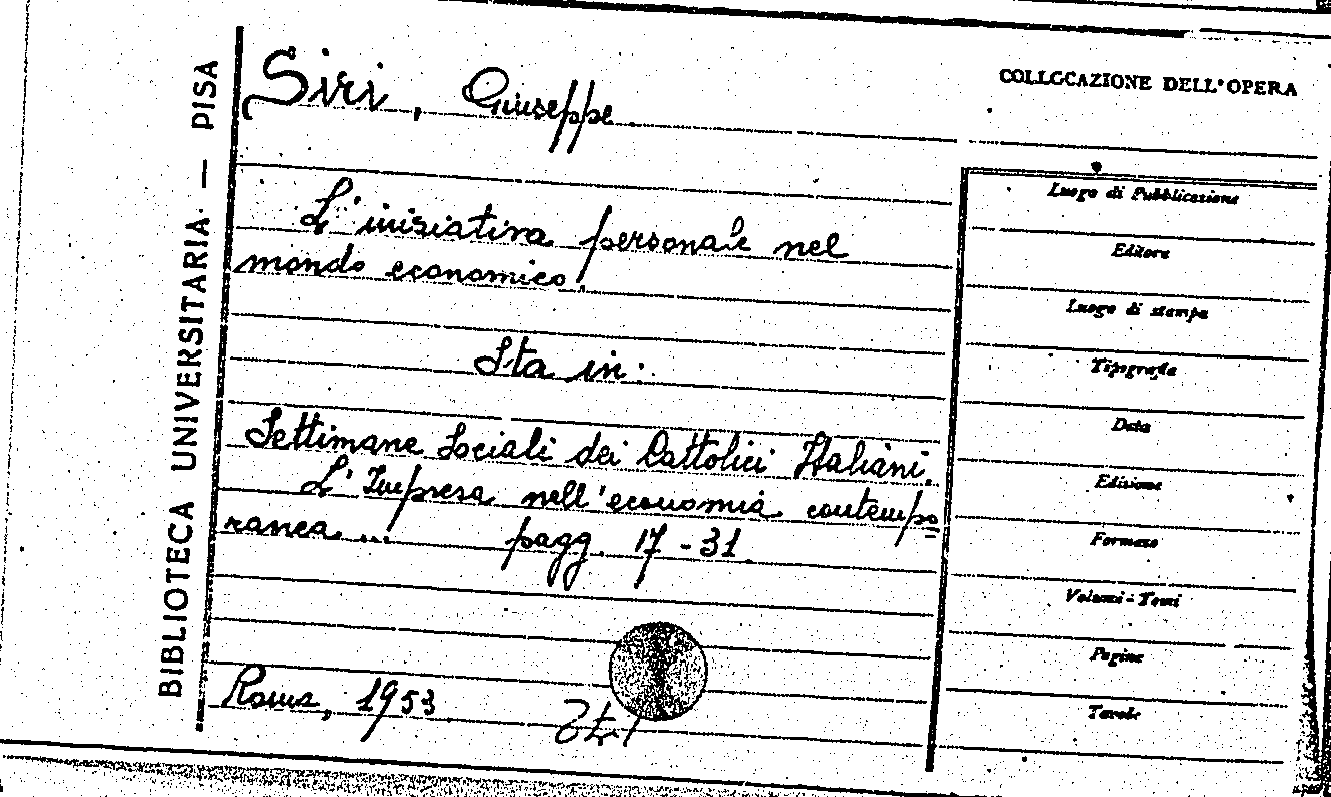 BIBLIOTECA UNIVERSITARIA — PISA
Siri, Giuseppe
L'iniziativa personale nel
mondo economico.
Sta in:
Settimane Sociali dei Cattolici Italiani.
L'Impresa nell'economia contempo
ranea ... pagg. 17-31
Roma, 1953
COLLOCAZIONE DELL'OPERA
Luogo di Pubblicazione
Editore
Luogo di stampa
Tipografia
Data
Edizione
Formato
Volumi - Tomi
Pagine
Tavole